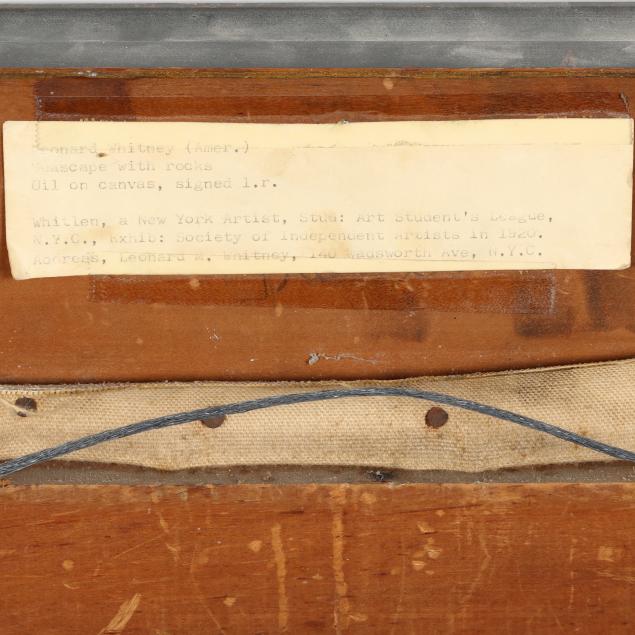 Leonard Whitney (Amer.)
Seascape with rocks
Oil on canvas, signed l.r.
Whitlen, a New York Artist, Stud: Art Student's League,
N.Y.C., Exhib: Society of Independent Artists in 1920.
Address, Leonard M. Whitney, 140 Wadsworth Ave, N.Y.C.